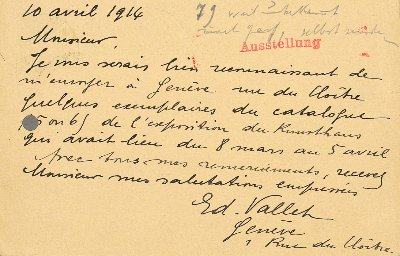 10 avril 1914
79
Ausstellung
Monsieur,
Je vous serais bien reconnaissant de
m'envoyer à Genève rue du Cloître
quelques exemplaires du catalogue
(5 ou 6) de l'exposition du Kunsthaus
qui avait lieu du 8 mars au 5 avril
Avec tous mes remerciements, recevez
Monsieur mes salutations empressées
Ed. Vallet
Genève
1 Rue du Cloître.